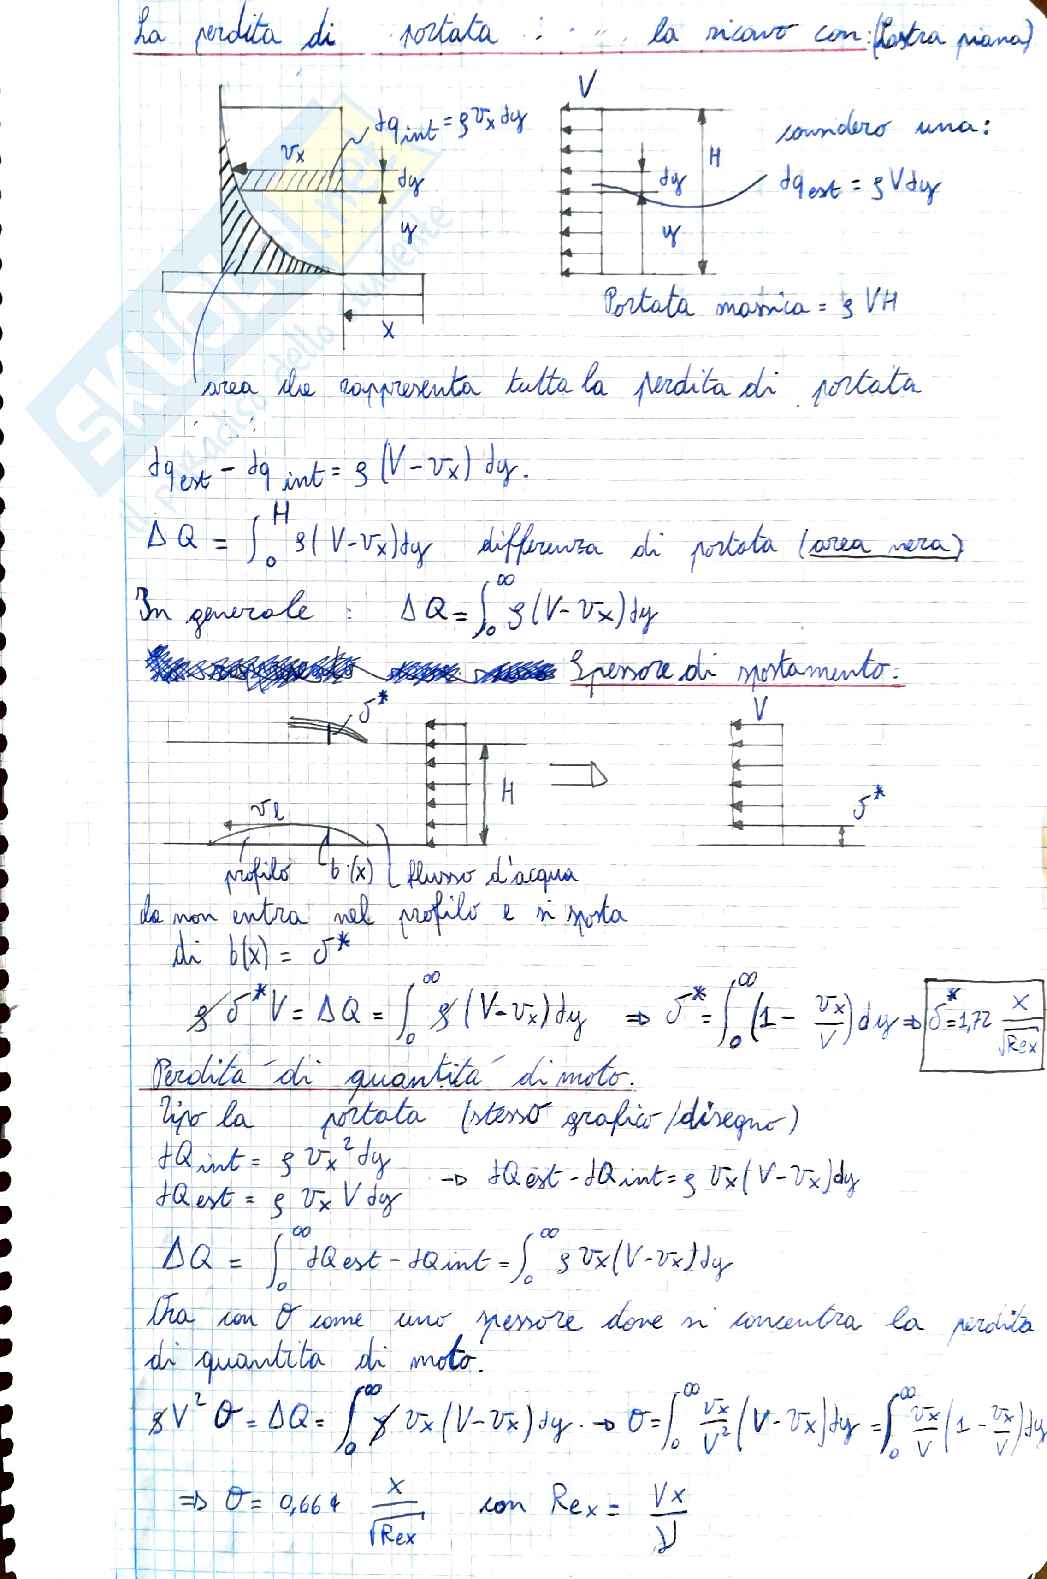 La perdita di portata la ricavo con: (Lastra piana)
dq int = ρ vx dy
vx
dy
y
x
V
H
dy
y
considero una:
dq est = ρ V dy
Portata massica = ρ VH
area che rappresenta tutta la perdita di portata
dq est - dq int = ρ (V - vx) dy.
ΔQ = ∫₀^H ρ(V - vx)dy differenza di portata (area nera)
In generale : ΔQ = ∫₀^∞ ρ(V - vx)dy
Spessore di spostamento:
δ*
H
V
δ*
profilo b(x) flusso d'acqua
che non entra nel profilo e si sposta
di b(x) = δ*
ρ δ* V = ΔQ = ∫₀^∞ ρ (V - vx) dy ⇒ δ* = ∫₀^∞ (1 - vx/V) dy ⇒ δ* = 1,72 x/√Rex
Perdita di quantità di moto.
Tipo la portata (stesso grafico/disegno)
dQ int = ρ vx² dy
dQ est = ρ vx V dy → dQ est - dQ int = ρ vx (V - vx) dy
ΔQ = ∫₀^∞ dQ est - dQ int = ∫₀^∞ ρ vx (V - vx) dy
Ora con θ come uno spessore dove si concentra la perdita
di quantita di moto.
ρ V² θ = ΔQ = ∫₀^∞ ρ vx (V - vx) dy. → θ = ∫₀^∞ vx/V² (V - vx) dy = ∫₀^∞ vx/V (1 - vx/V) dy
⇒ θ = 0,664 x/√Rex con Rex = Vx/ν
SKUOLA.net
il paradiso dello studente